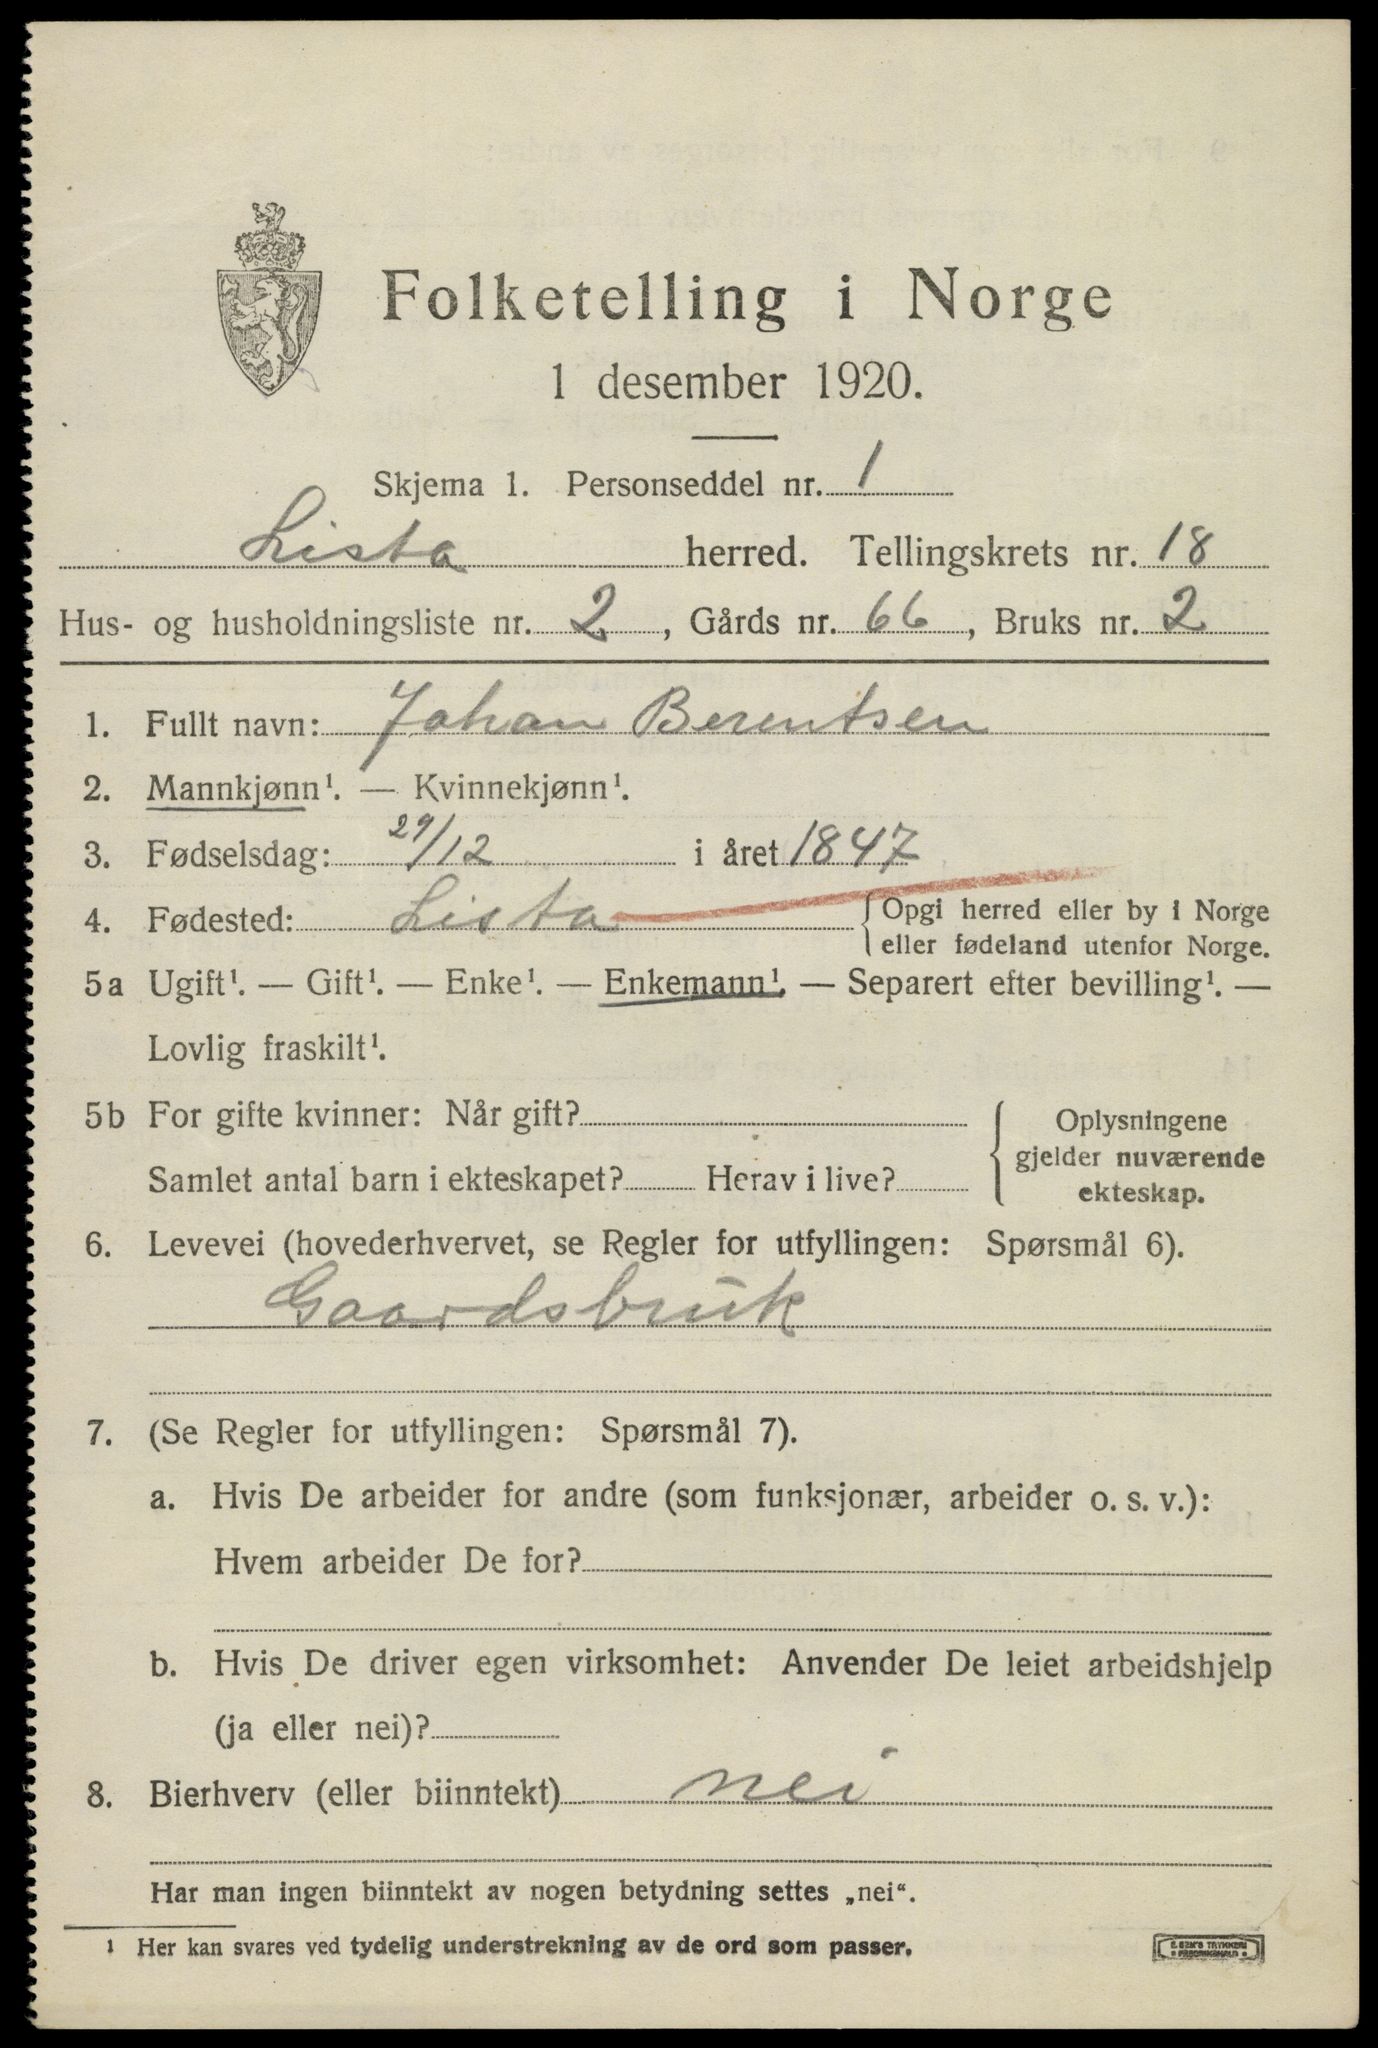 Folketelling i Norge
1 desember 1920.
Skjema 1. Personseddel nr. 1
Lista herred. Tellingskrets nr. 18
Hus- og husholdningsliste nr. 2, Gårds nr. 66, Bruks nr. 2
1. Fullt navn: Johan Berentsen
2. Mannkjønn¹. — Kvinnekjønn¹.
3. Fødselsdag: 29/12 i året 1847
4. Fødested: Lista {Opgi herred eller by i Norge
eller fødeland utenfor Norge.
5a Ugift¹. — Gift¹. — Enke¹. — Enkemann¹. — Separert efter bevilling¹. —
Lovlig fraskilt¹.
5b For gifte kvinner: Når gift?
Samlet antal barn i ekteskapet? Herav i live?
Oplysningene
gjelder nuværende
ekteskap.
6. Levevei (hovederhvervet, se Regler for utfyllingen: Spørsmål 6).
Gaardsbruk
7. (Se Regler for utfyllingen: Spørsmål 7).
a. Hvis De arbeider for andre (som funksjonær, arbeider o. s. v.):
Hvem arbeider De for?
b. Hvis De driver egen virksomhet: Anvender De leiet arbeidshjelp
(ja eller nei)?
8. Bierhverv (eller biinntekt) nei
Har man ingen biinntekt av nogen betydning settes „nei“.
1 Her kan svares ved tydelig understrekning av de ord som passer.